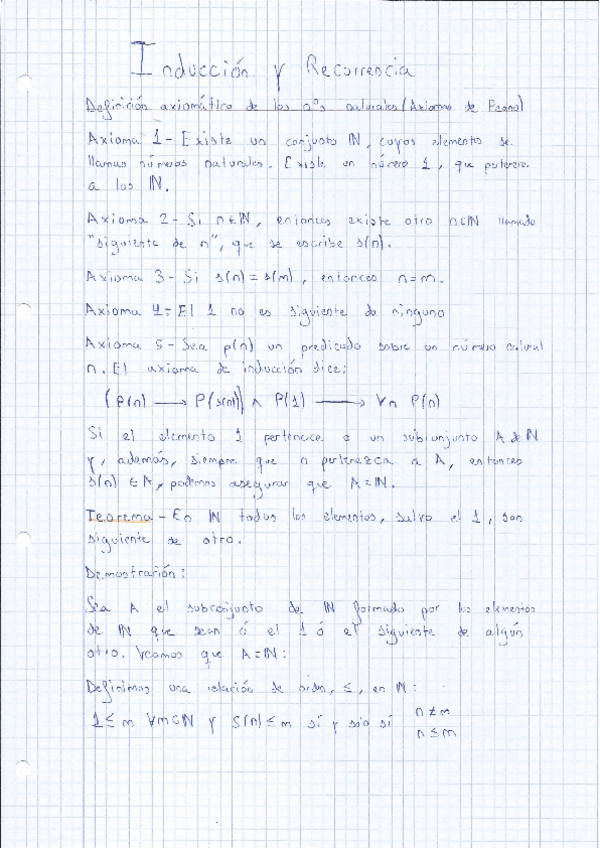 Inducción y Recurrencia
Definición axiomática de los nºs naturales (Axiomas de Peano)
Axioma 1 - Existe un conjunto ℕ, cuyos elementos se
llaman números naturales. Existe un número 1, que pertenece
a los ℕ.
Axioma 2 - Si n∈ℕ, entonces existe otro n∈ℕ llamado
"siguiente de n", que se escribe s(n).
Axioma 3 - Si s(n) = s(m), entonces n=m.
Axioma 4 - El 1 no es siguiente de ninguno
Axioma 5 - Sea p(n) un predicado sobre un número natural
n. El axioma de inducción dice:
(P(n) ⟶ P(s(n))) ∧ P(1) ⟶ ∀n P(n)
Si el elemento 1 pertenece a un subconjunto A de ℕ
y, además, siempre que n pertenezca a A, entonces
s(n) ∈ A, podemos asegurar que A=ℕ.
Teorema - En ℕ todos los elementos, salvo el 1, son
siguiente de otro.
Demostración:
Sea A el subconjunto de ℕ formado por los elementos
de ℕ que sean ó el 1 ó el siguiente de algún
otro. Veamos que A=ℕ:
Definimos una relación de orden, ≤, en ℕ:
1≤m ∀m∈ℕ y s(n)≤m sí y solo sí n≠m
n≤m